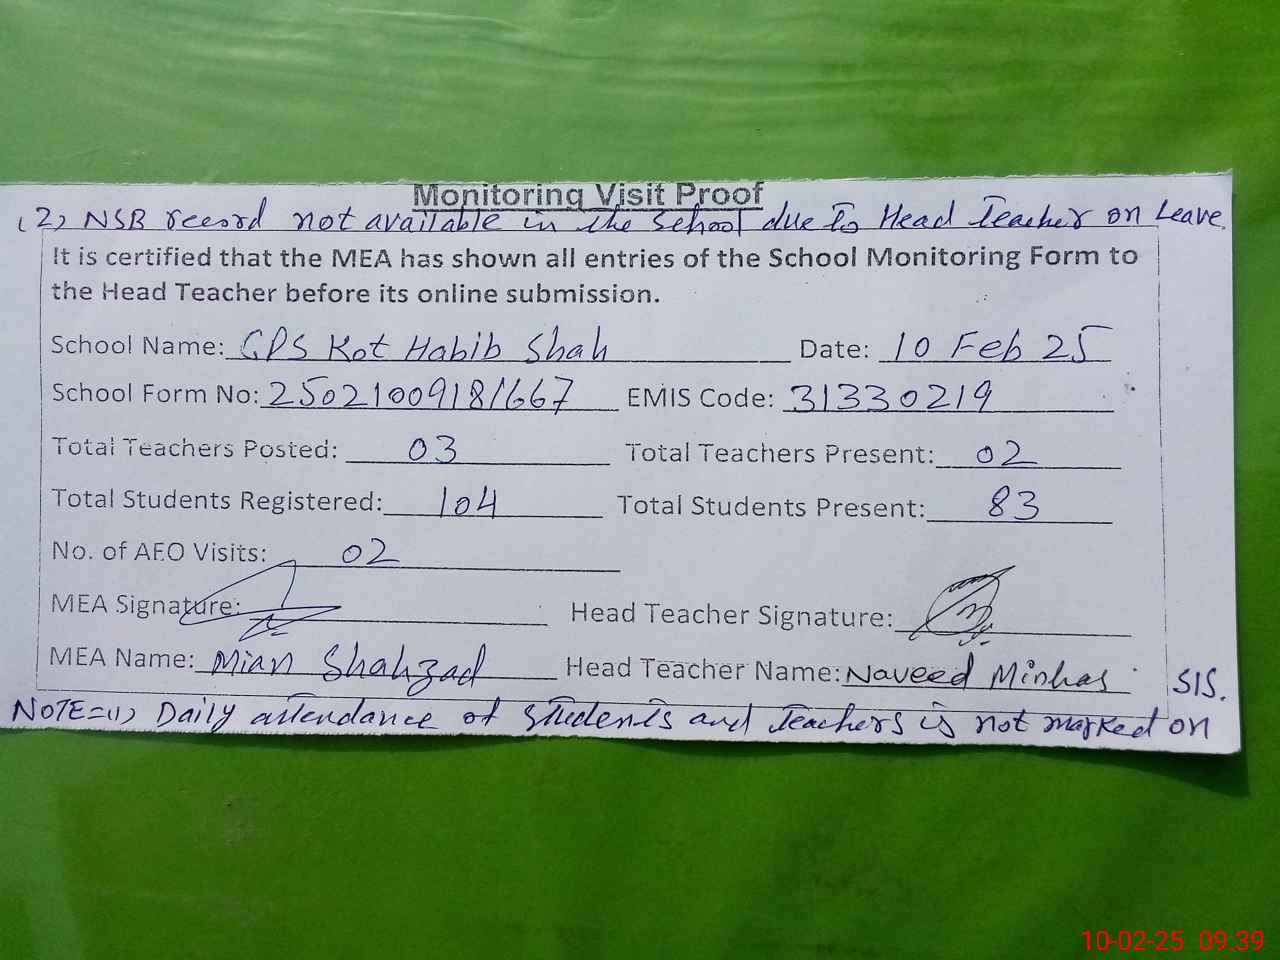 Monitoring Visit Proof
(2) NSB record not available in the School due to Head Teacher on Leave.
It is certified that the MEA has shown all entries of the School Monitoring Form to
the Head Teacher before its online submission.
School Name: GPS Kot Habib Shah Date: 10 Feb 25
School Form No: 25021009181667 EMIS Code: 31330219
Total Teachers Posted: 03 Total Teachers Present: 02
Total Students Registered: 104 Total Students Present: 83
No. of AEO Visits: 02
MEA Signature: Head Teacher Signature:
MEA Name: Mian Shahzad Head Teacher Name: Naveed Minhas SIS.
NOTE=(1) Daily attendance of Students and Teachers is not marked on
10-02-25 09:39